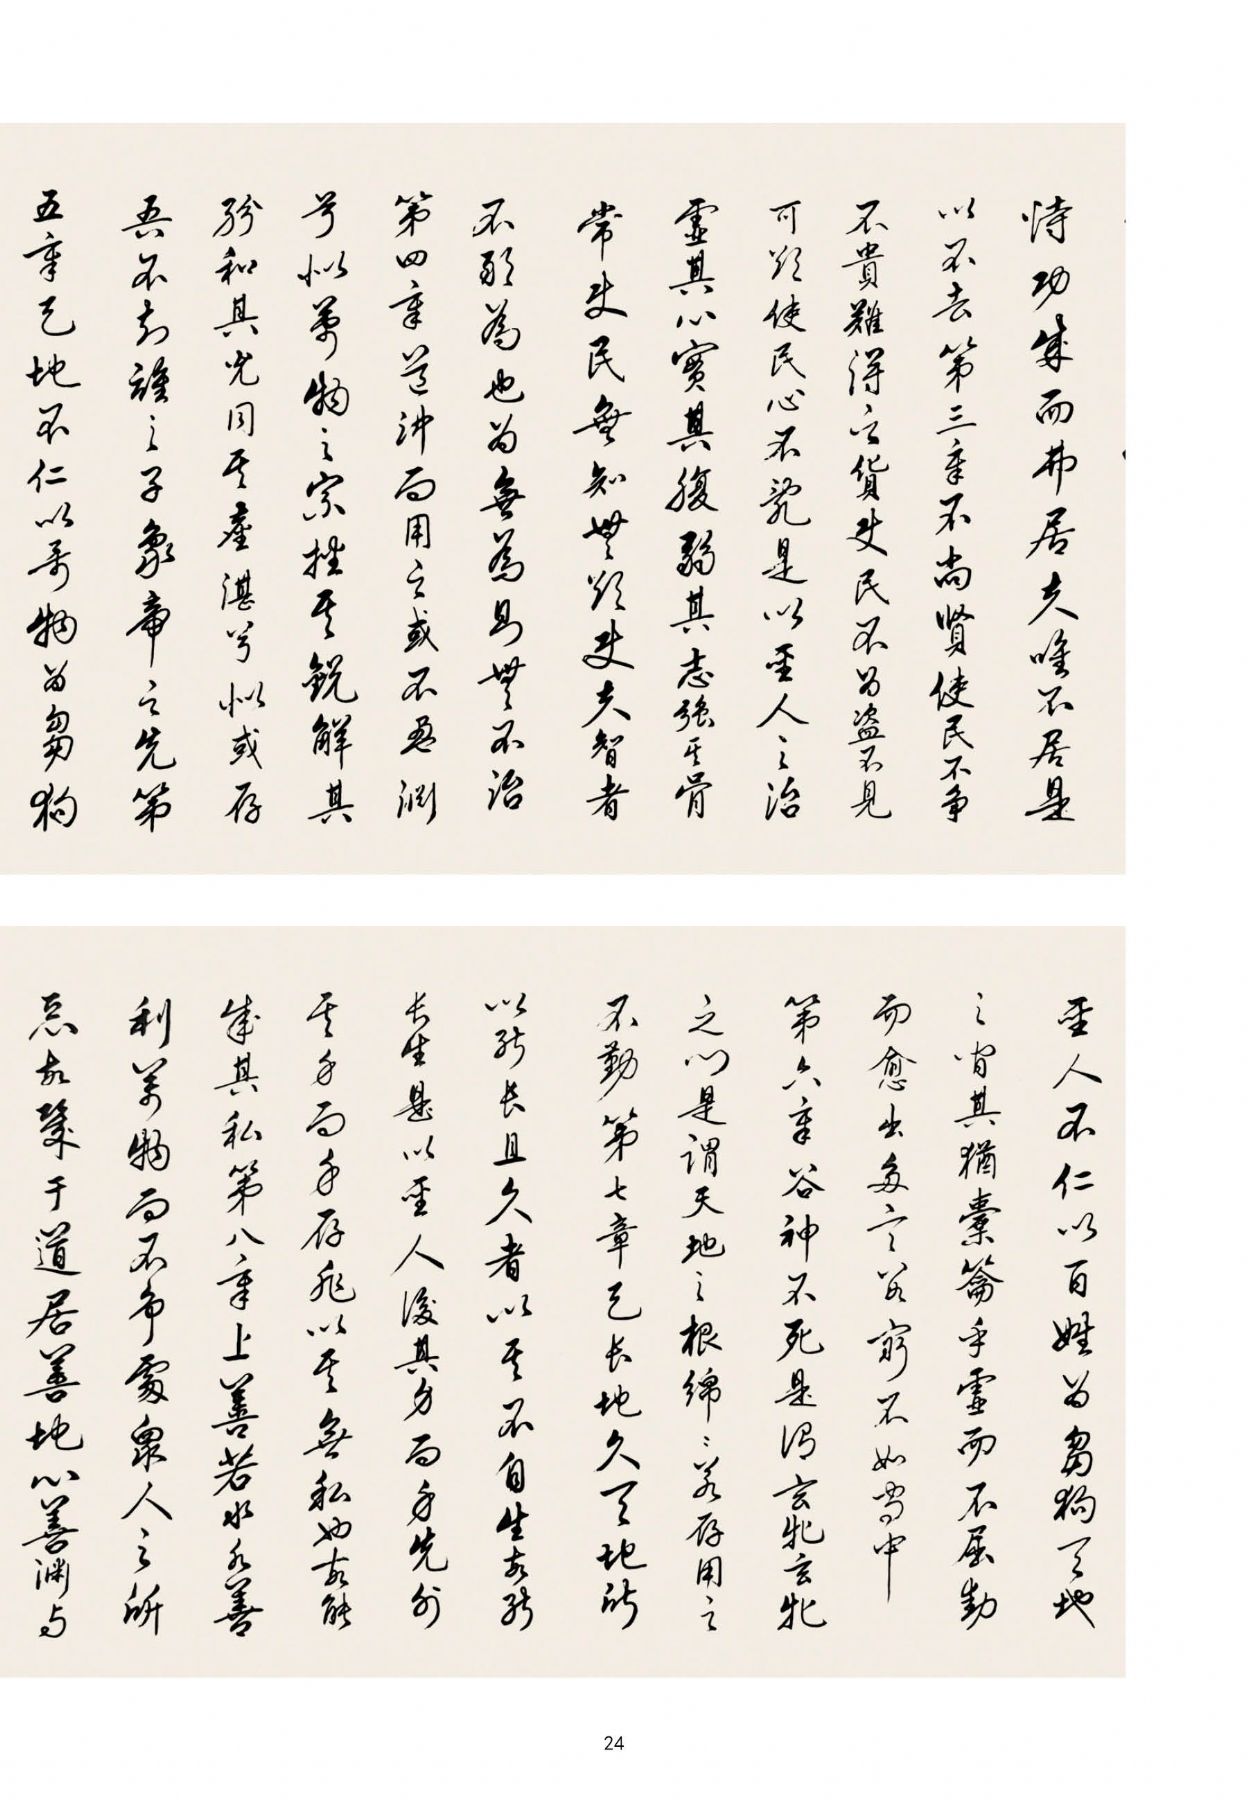 恃功成而弗居夫唯不居是
以不去第三章不尚賢使民不争
不貴難得之貨使民不为盗不見
可欲使民心不亂是以聖人之治
虚其心實其腹弱其志強其骨
常使民無知無欲使夫智者
不敢為也为無為則無不治
第四章道沖而用之或不盈渊
兮似萬物之宗挫其銳解其
紛和其光同其塵湛兮似或存
吾不知誰之子象帝之先第
五章天地不仁以萬物为芻狗
聖人不仁以百姓为芻狗天地
之間其猶橐籥乎虚而不屈動
而愈出多言数窮不如守中
第六章谷神不死是謂玄牝玄牝
之门是謂天地之根绵〻若存用之
不勤第七章天长地久天地所
以能长且久者以其不自生故能
长生是以聖人後其身而身先外
其身而身存非以其無私也故能
成其私第八章上善若水水善
利萬物而不争處衆人之所
惡故幾于道居善地心善渊与
24